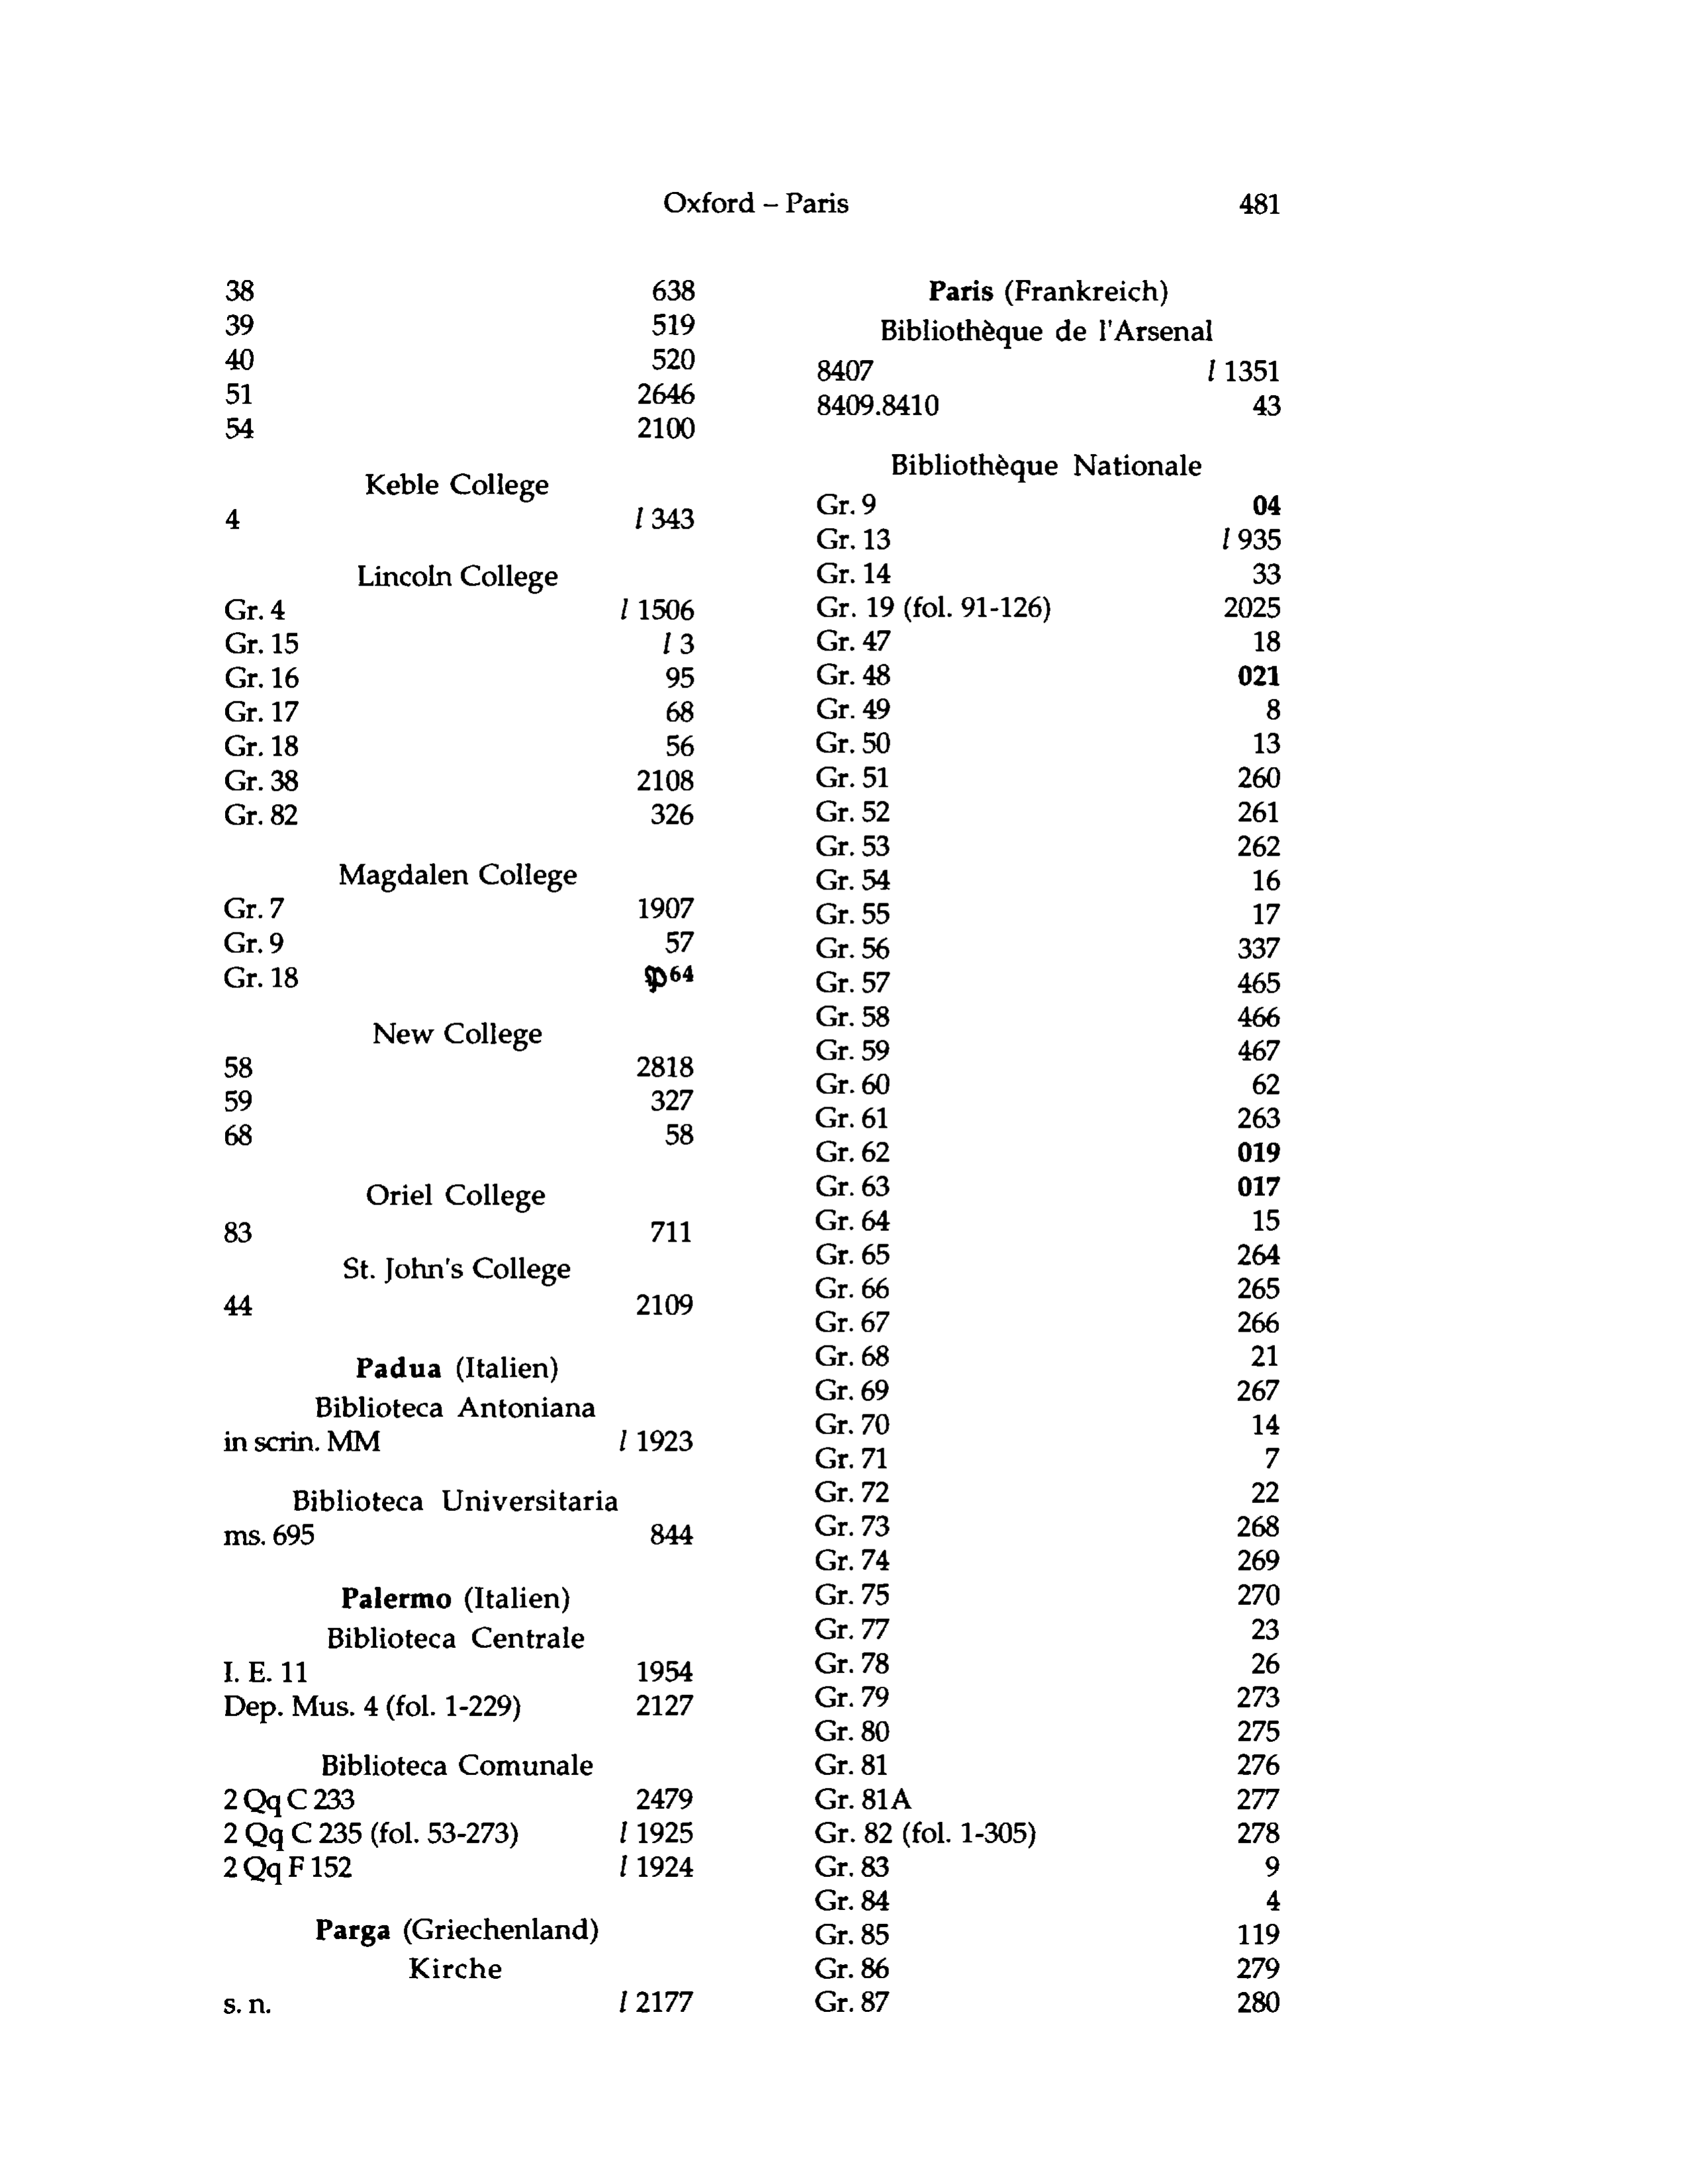 Oxford – Paris 481
38 638
39 519
40 520
51 2646
54 2100
Keble College
4 l 343
Lincoln College
Gr. 4 l 1506
Gr. 15 l 3
Gr. 16 95
Gr. 17 68
Gr. 18 56
Gr. 38 2108
Gr. 82 326
Magdalen College
Gr. 7 1907
Gr. 9 57
Gr. 18 𝔓⁶⁴
New College
58 2818
59 327
68 58
Oriel College
83 711
St. John's College
44 2109
Padua (Italien)
Biblioteca Antoniana
in scrin. MM l 1923
Biblioteca Universitaria
ms. 695 844
Palermo (Italien)
Biblioteca Centrale
I. E. 11 1954
Dep. Mus. 4 (fol. 1-229) 2127
Biblioteca Comunale
2 Qq C 233 2479
2 Qq C 235 (fol. 53-273) l 1925
2 Qq F 152 l 1924
Parga (Griechenland)
Kirche
s. n. l 2177
Paris (Frankreich)
Bibliothèque de l'Arsenal
8407 l 1351
8409.8410 43
Bibliothèque Nationale
Gr. 9 04
Gr. 13 l 935
Gr. 14 33
Gr. 19 (fol. 91-126) 2025
Gr. 47 18
Gr. 48 021
Gr. 49 8
Gr. 50 13
Gr. 51 260
Gr. 52 261
Gr. 53 262
Gr. 54 16
Gr. 55 17
Gr. 56 337
Gr. 57 465
Gr. 58 466
Gr. 59 467
Gr. 60 62
Gr. 61 263
Gr. 62 019
Gr. 63 017
Gr. 64 15
Gr. 65 264
Gr. 66 265
Gr. 67 266
Gr. 68 21
Gr. 69 267
Gr. 70 14
Gr. 71 7
Gr. 72 22
Gr. 73 268
Gr. 74 269
Gr. 75 270
Gr. 77 23
Gr. 78 26
Gr. 79 273
Gr. 80 275
Gr. 81 276
Gr. 81A 277
Gr. 82 (fol. 1-305) 278
Gr. 83 9
Gr. 84 4
Gr. 85 119
Gr. 86 279
Gr. 87 280